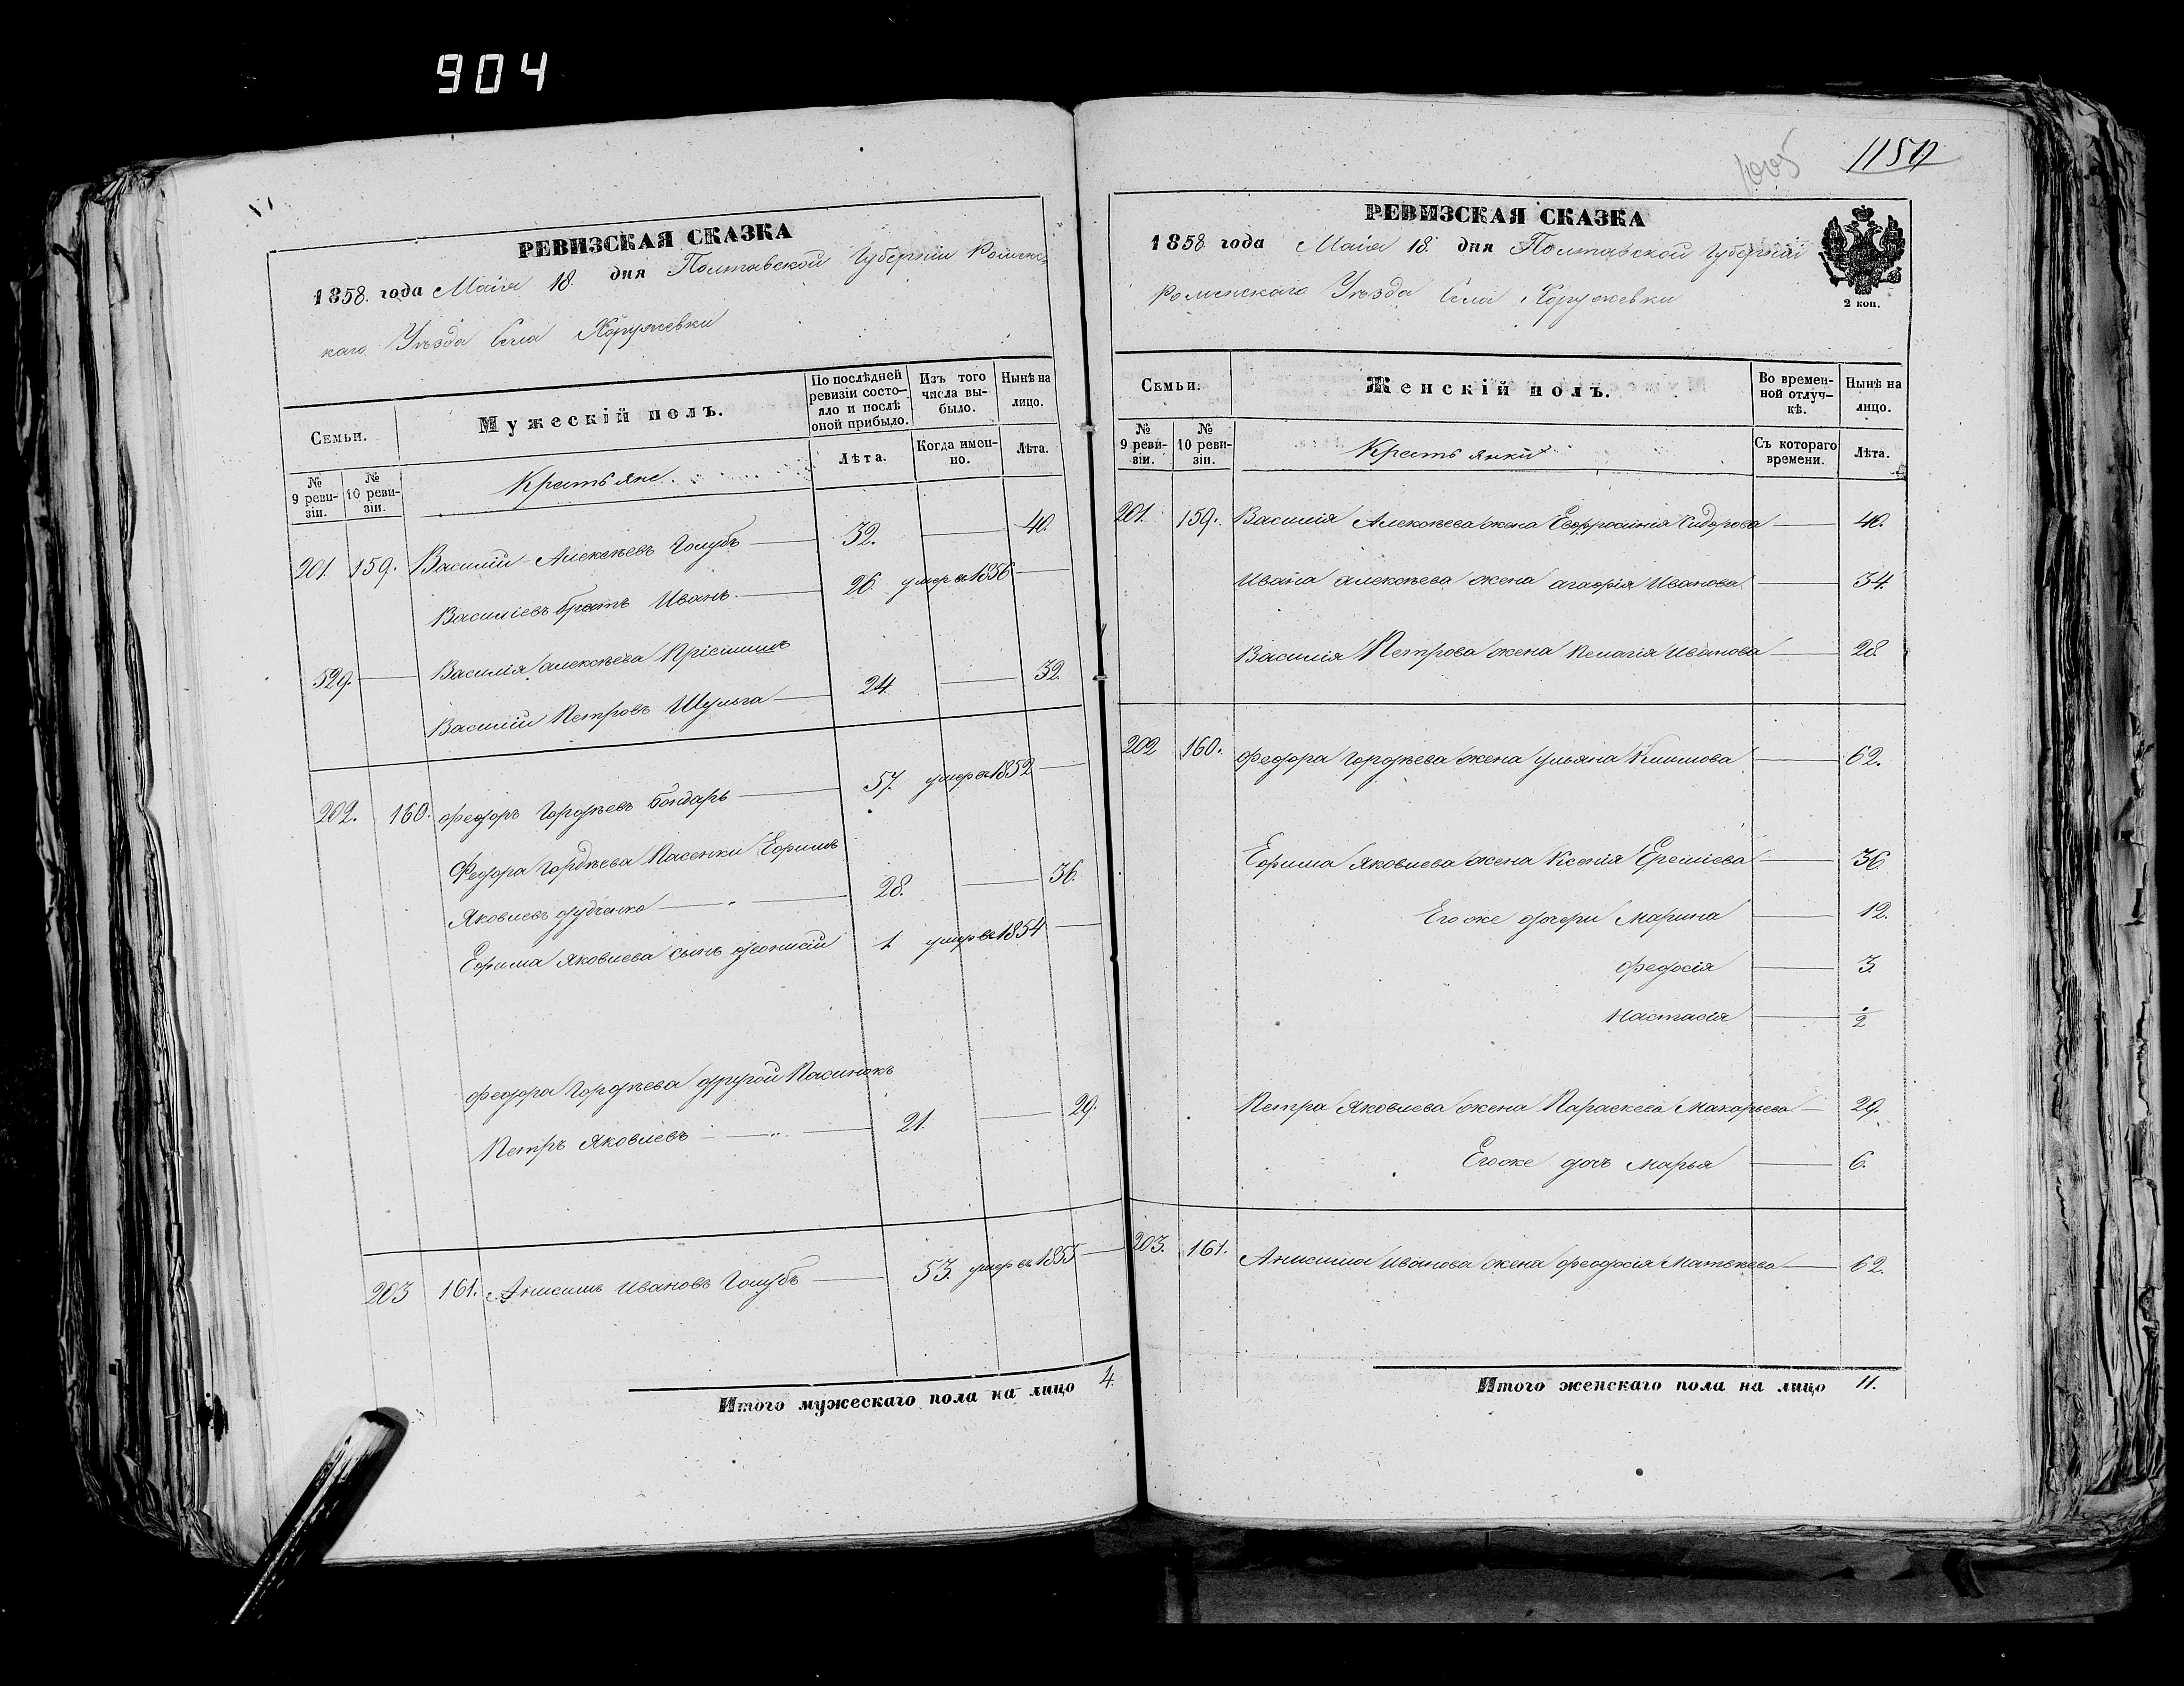 904
РЕВИЗСКАЯ СКАЗКА
1858. года Маія 18. дня Полтавской Губерніи Роменс-
каго Уѣзда Села Хоружевки
Семьи.
Мужескій полъ.
По послѣдней ревизіи состо-яло и послѣ оной прибыло.
Изъ того числа вы-было.
Нынѣ на лицо.
№ 9 реви-зіи.
№ 10 реви-зіи.
Крестьяне.
Лѣта.
Когда имен-но.
Лѣта.
201. 159. Василій Алексѣевъ Голубъ 32. 40.
Василіевъ братъ Иванъ 26. умер въ 1856
529. Василія Алексѣева Пріемишъ
Василій Петровъ Шульга 24. 32.
202. 160. Федоръ Гордѣевъ Бондарь 57. умер въ 1852
Федора Гордѣева Пасенки Ефимъ
Яковлевъ Дудченко 28. 36.
Ефима Яковлева сынъ Деонисій 1. умер въ 1854
Федора Гордѣева другой Пасинокъ
Петръ Яковлевъ 21. 29.
203 161. Анисимъ Ивановъ Голубъ 53. умер въ 1855
Итого мужескаго пола на лицо 4.
1005
115
РЕВИЗСКАЯ СКАЗКА
1858 года Маія 18. дня Полтавской Губерніи
Роменскаго Уѣзда Села Хоружевки
2 коп.
Семьи.
Женскій полъ.
Во времен-ной отлуч-кѣ.
Нынѣ на лицо.
№ 9 реви-зіи.
№ 10 реви-зіи.
Крестьянки
Съ котораго времени.
Лѣта.
201. 159. Василія Алексѣева жена Евфросинія Сидорова 40.
Ивана Алексѣева жена Агафія Иванова 34.
Василія Петрова жена Пелагія Иванова 28.
202 160. Федора Гордѣева жена Ульяна Климова 62.
Ефима Яковлева жена Ксенія Еремієва 36.
Его же дочери Марина 12.
Федосія 3.
Настасія 1/2
Петра Яковлева жена Параскева Макарьева 29.
Его же дочь Марья 6.
203. 161. Анисима Иванова жена Феодосія Матвѣева 62.
Итого женскаго пола на лицо 11.